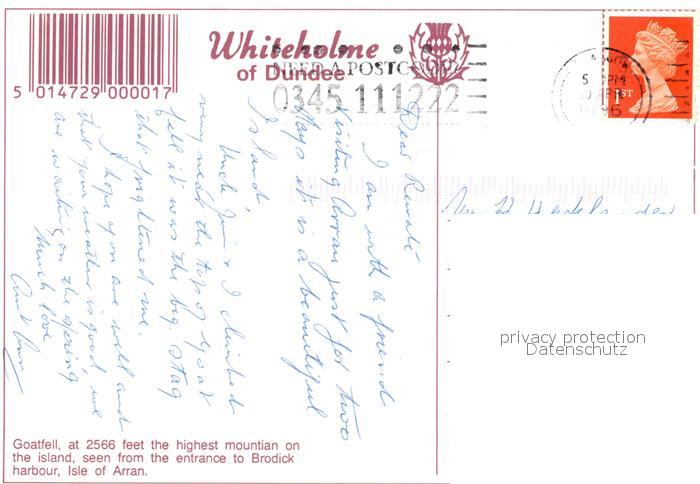 Whiteholme
of Dundee
5 014729 000017
NEED A POSTCODE
0345 111222
1ST
Dear Renate
I am with a friend
visiting Arran just for two
days it is a beautiful
Island,
Uncle Jim & I climbed
very near the top of Goat
fell it was the big stag
that frightened me.
I hope you are well and
that your weather is good, we
are waiting on the spring
much love
Aunt
privacy protection
Datenschutz
Goatfell, at 2566 feet the highest mountian on
the island, seen from the entrance to Brodick
harbour, Isle of Arran.